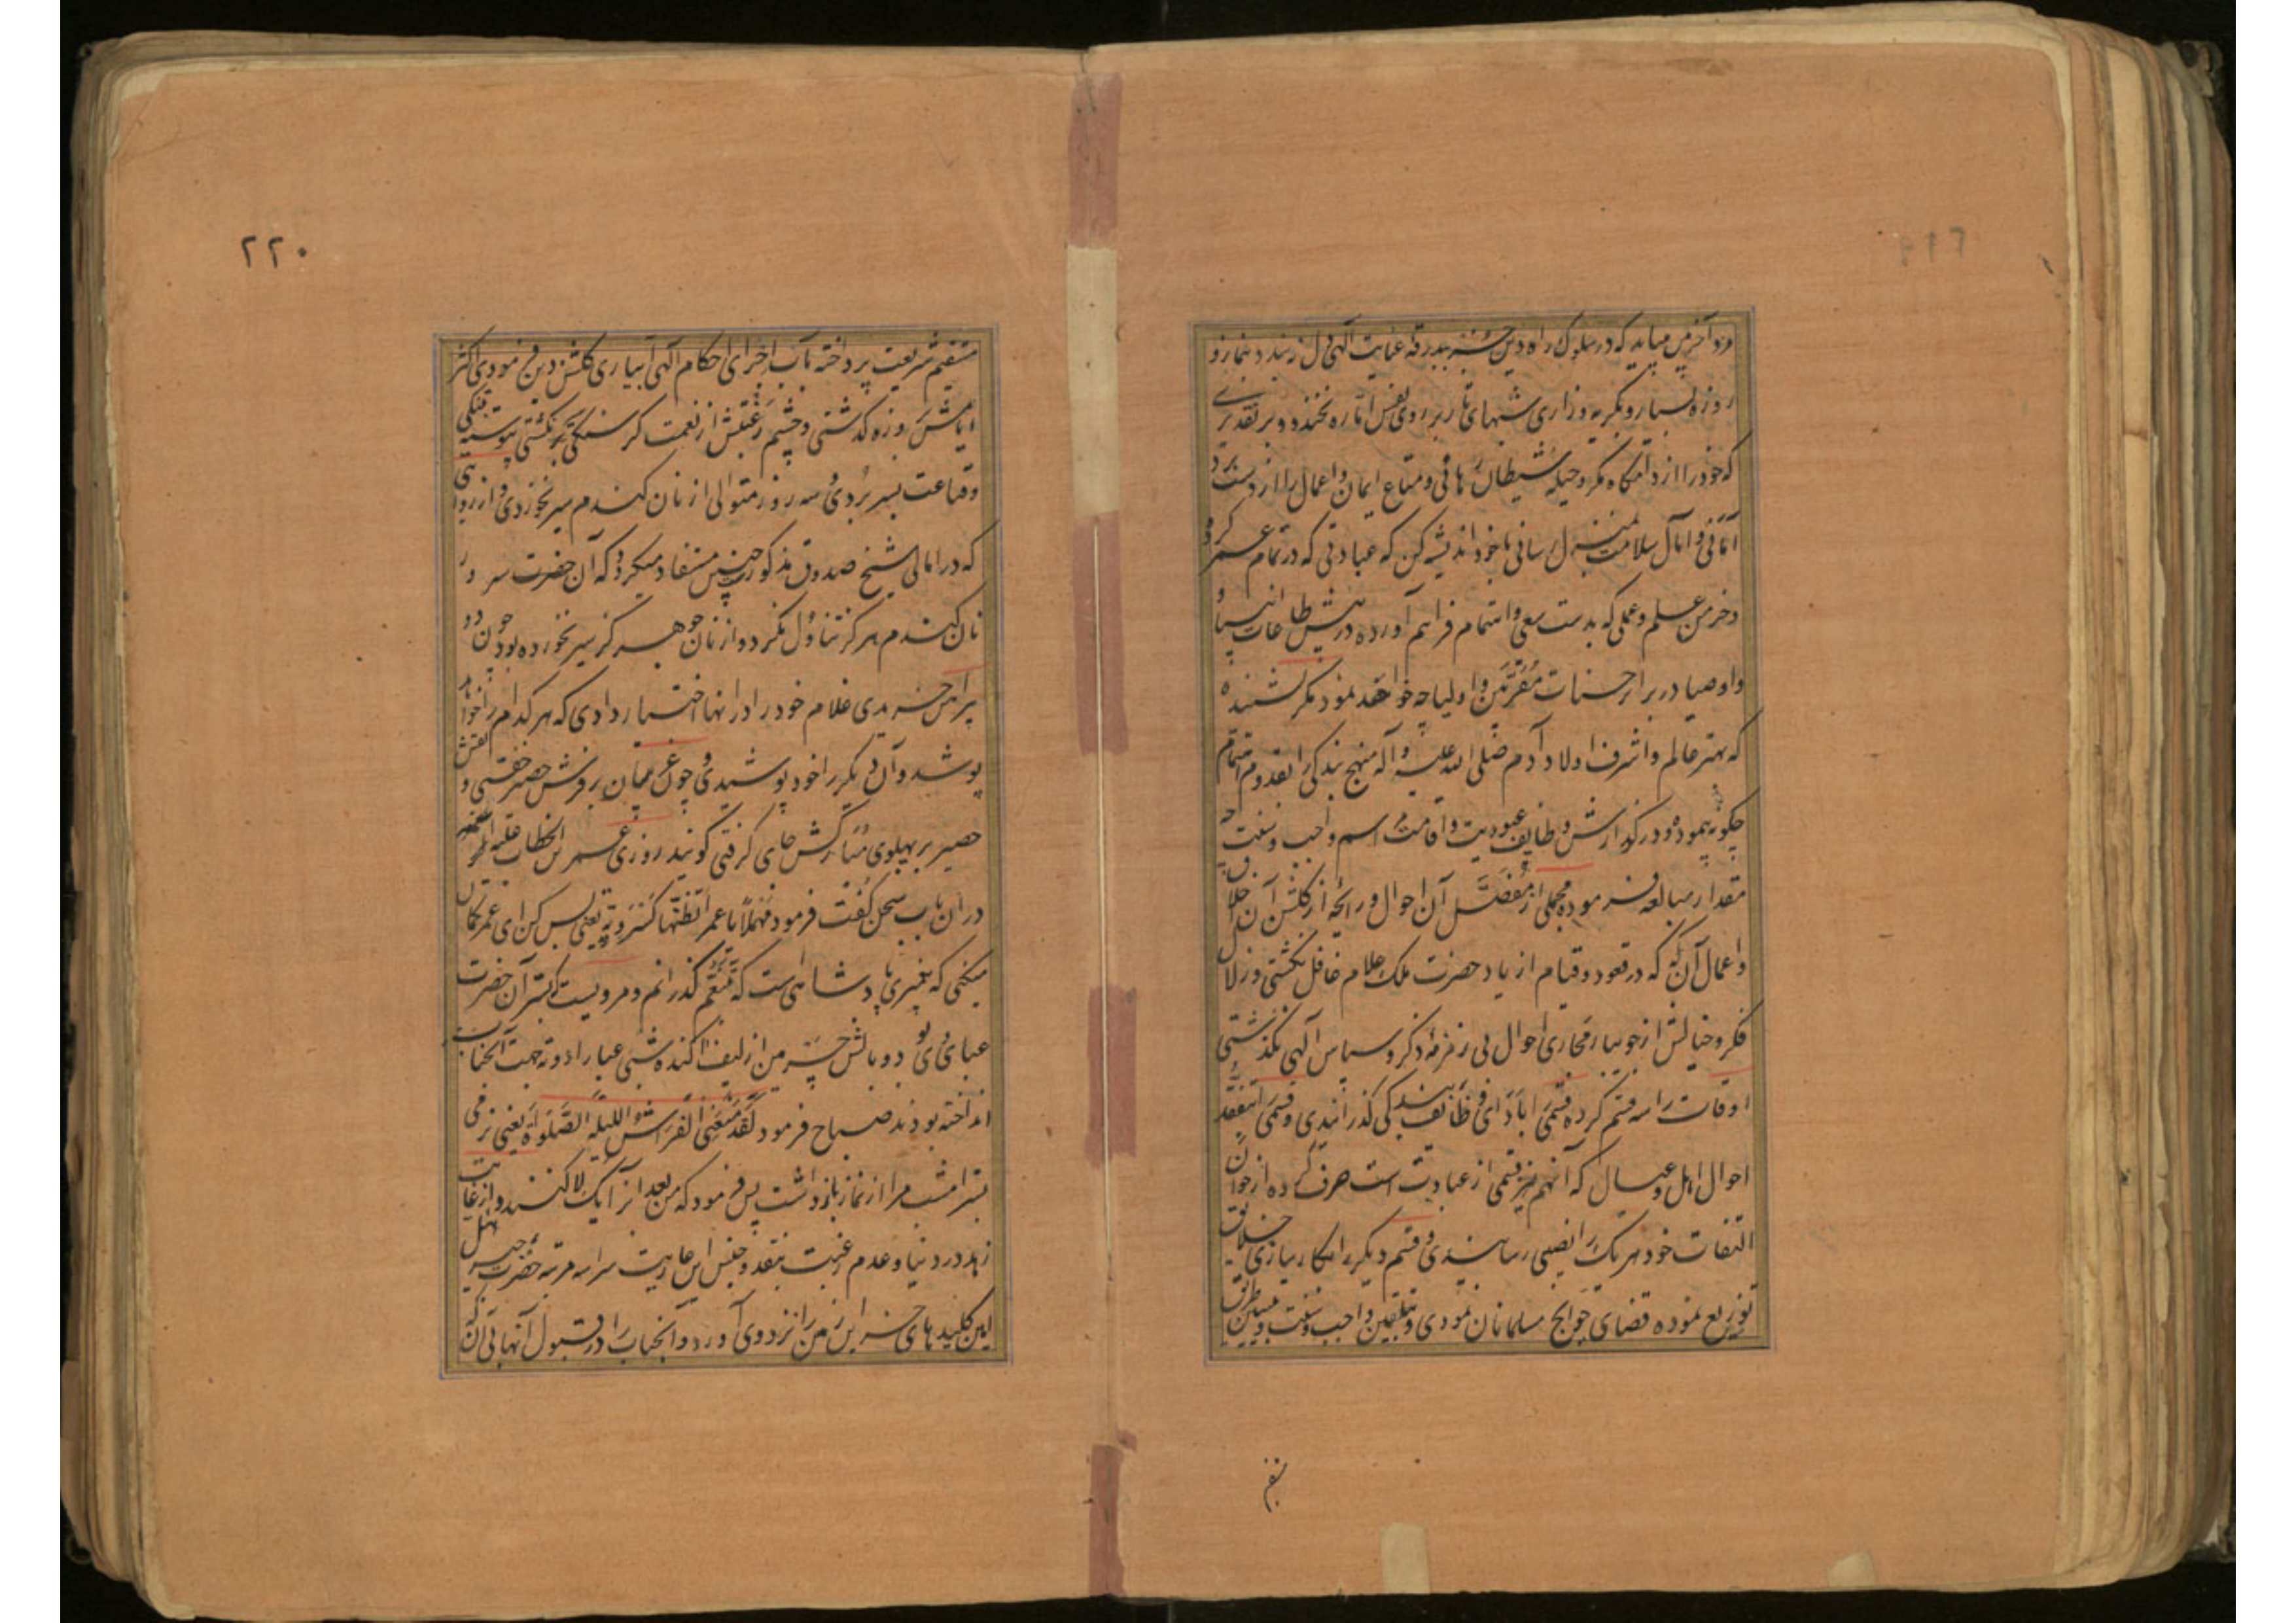 مرد آخربین میباید که در سلوک راه دین جز ببدرقه عنایت الهی دل نبندد و بنماز و
روزهٔ بسیار و بگریه و زاری شبهای تار بر روی نفس اماره نخندد و بر تقدیری
که خود را از دامگاه مکر و حیله شیطان رهانی و متاع ایمان و اعمال را از دستبرد
امانی و آمال سلامت بمنزل رسانی با خود اندیشه کن که عبادتی که در تمام عمر کرده
و خرمن علم و عملی که بدست سعی و اهتمام فراهم آورده در پیش طاعات انبیا و
و اوصیا و در برابر حسنات مقربین و اولیا چه خواهد نمود مگر نشنیدهٔ
که بهتر عالم و اشرف اولاد آدم صلی الله علیه و آله منهج بندگی را بقدوم اهتمام
چگونه پیموده و در گذارش وظایف عبودیت و اقامت مراسم واجب و سنت چه
مقدار مبالغه فرموده مجملی از مفصل آن احوال و رائحهٔ از گلشن آن اخلاق
و اعمال آن که در قعود و قیام از یاد حضرت ملک علام غافل نگشتی و زلال
فکر و خیالش از جویبار مجاری احوال بی زمزمهٔ ذکر و سپاس الهی نگذشتی
اوقات را سه قسم کرده قسمی را بادای وظائف بندگی گذرانیدی و قسمی را بتفقد
احوال اهل و عیال که آنهم نیز قسمی از عبادت است صرف کرده از خوان
التفات خود هر یک را نصیبی رسانیدی و قسم دیگر را بکارسازی خلایق
توزیع نموده قضای حوایج مسلمانان نمودی و بتلقین واجب و سنت و تبیین طریق
۲۲۰
مستقیم شریعت پرداخته بآب اجرای احکام الهی آبیاری گلشن دین فرمودی اکثر
ایامش بروزه گذشتی و چشم رغبتش از نعمت گرسنگی سیر نگشتی پیوسته بتنگی
و قناعت بسر بردی و سه روز متوالی از نان گندم سیر نخوردی و از روایتی
که در امالی شیخ صدوق مذکور است چنین مستفاد میگردد که آن حضرت سرور
نان گندم هرگز تناول نکرد و از نان جو هم هرگز سیر نخورده بود چون دو
پیراهن خریدی غلام خود را در آنها اختیار دادی که هر کدام را خواهد
پوشد و آن دیگر را خود پوشیدی و چون غریبان بر فرش حصیر خفتی و نقش
حصیر بر پهلوی مبارکش جای گرفتی گویند روزی عمر بن الخطاب
در آن باب سخن گفت فرمود مهلا یا عمر اتظنها کسرویة یعنی بس کن ای عمر گمان
میکنی که پیغمبری پادشاهی است که بتنعم گذرانم و مرویست که بستر آن حضرت
عبائی بود و بالش چرمین از لیف آکنده شبی عبا را دو ته جهت آنجناب
انداخته بودند صباح فرمود لقد منعنی الفراش اللیلة الصلوة یعنی نرمی
بستر امشب مرا از نماز بازداشت پس فرمود که من بعد آنرا یک لا کنند و از غایت
زهد در دنیا و عدم رغبت بنقد و جنس این عاریت سرا سه مرتبه حضرت جبرئیل
امین کلیدهای خزاین زمین را نزد وی آورد و آنجناب را در قبول آنها بی آنکه